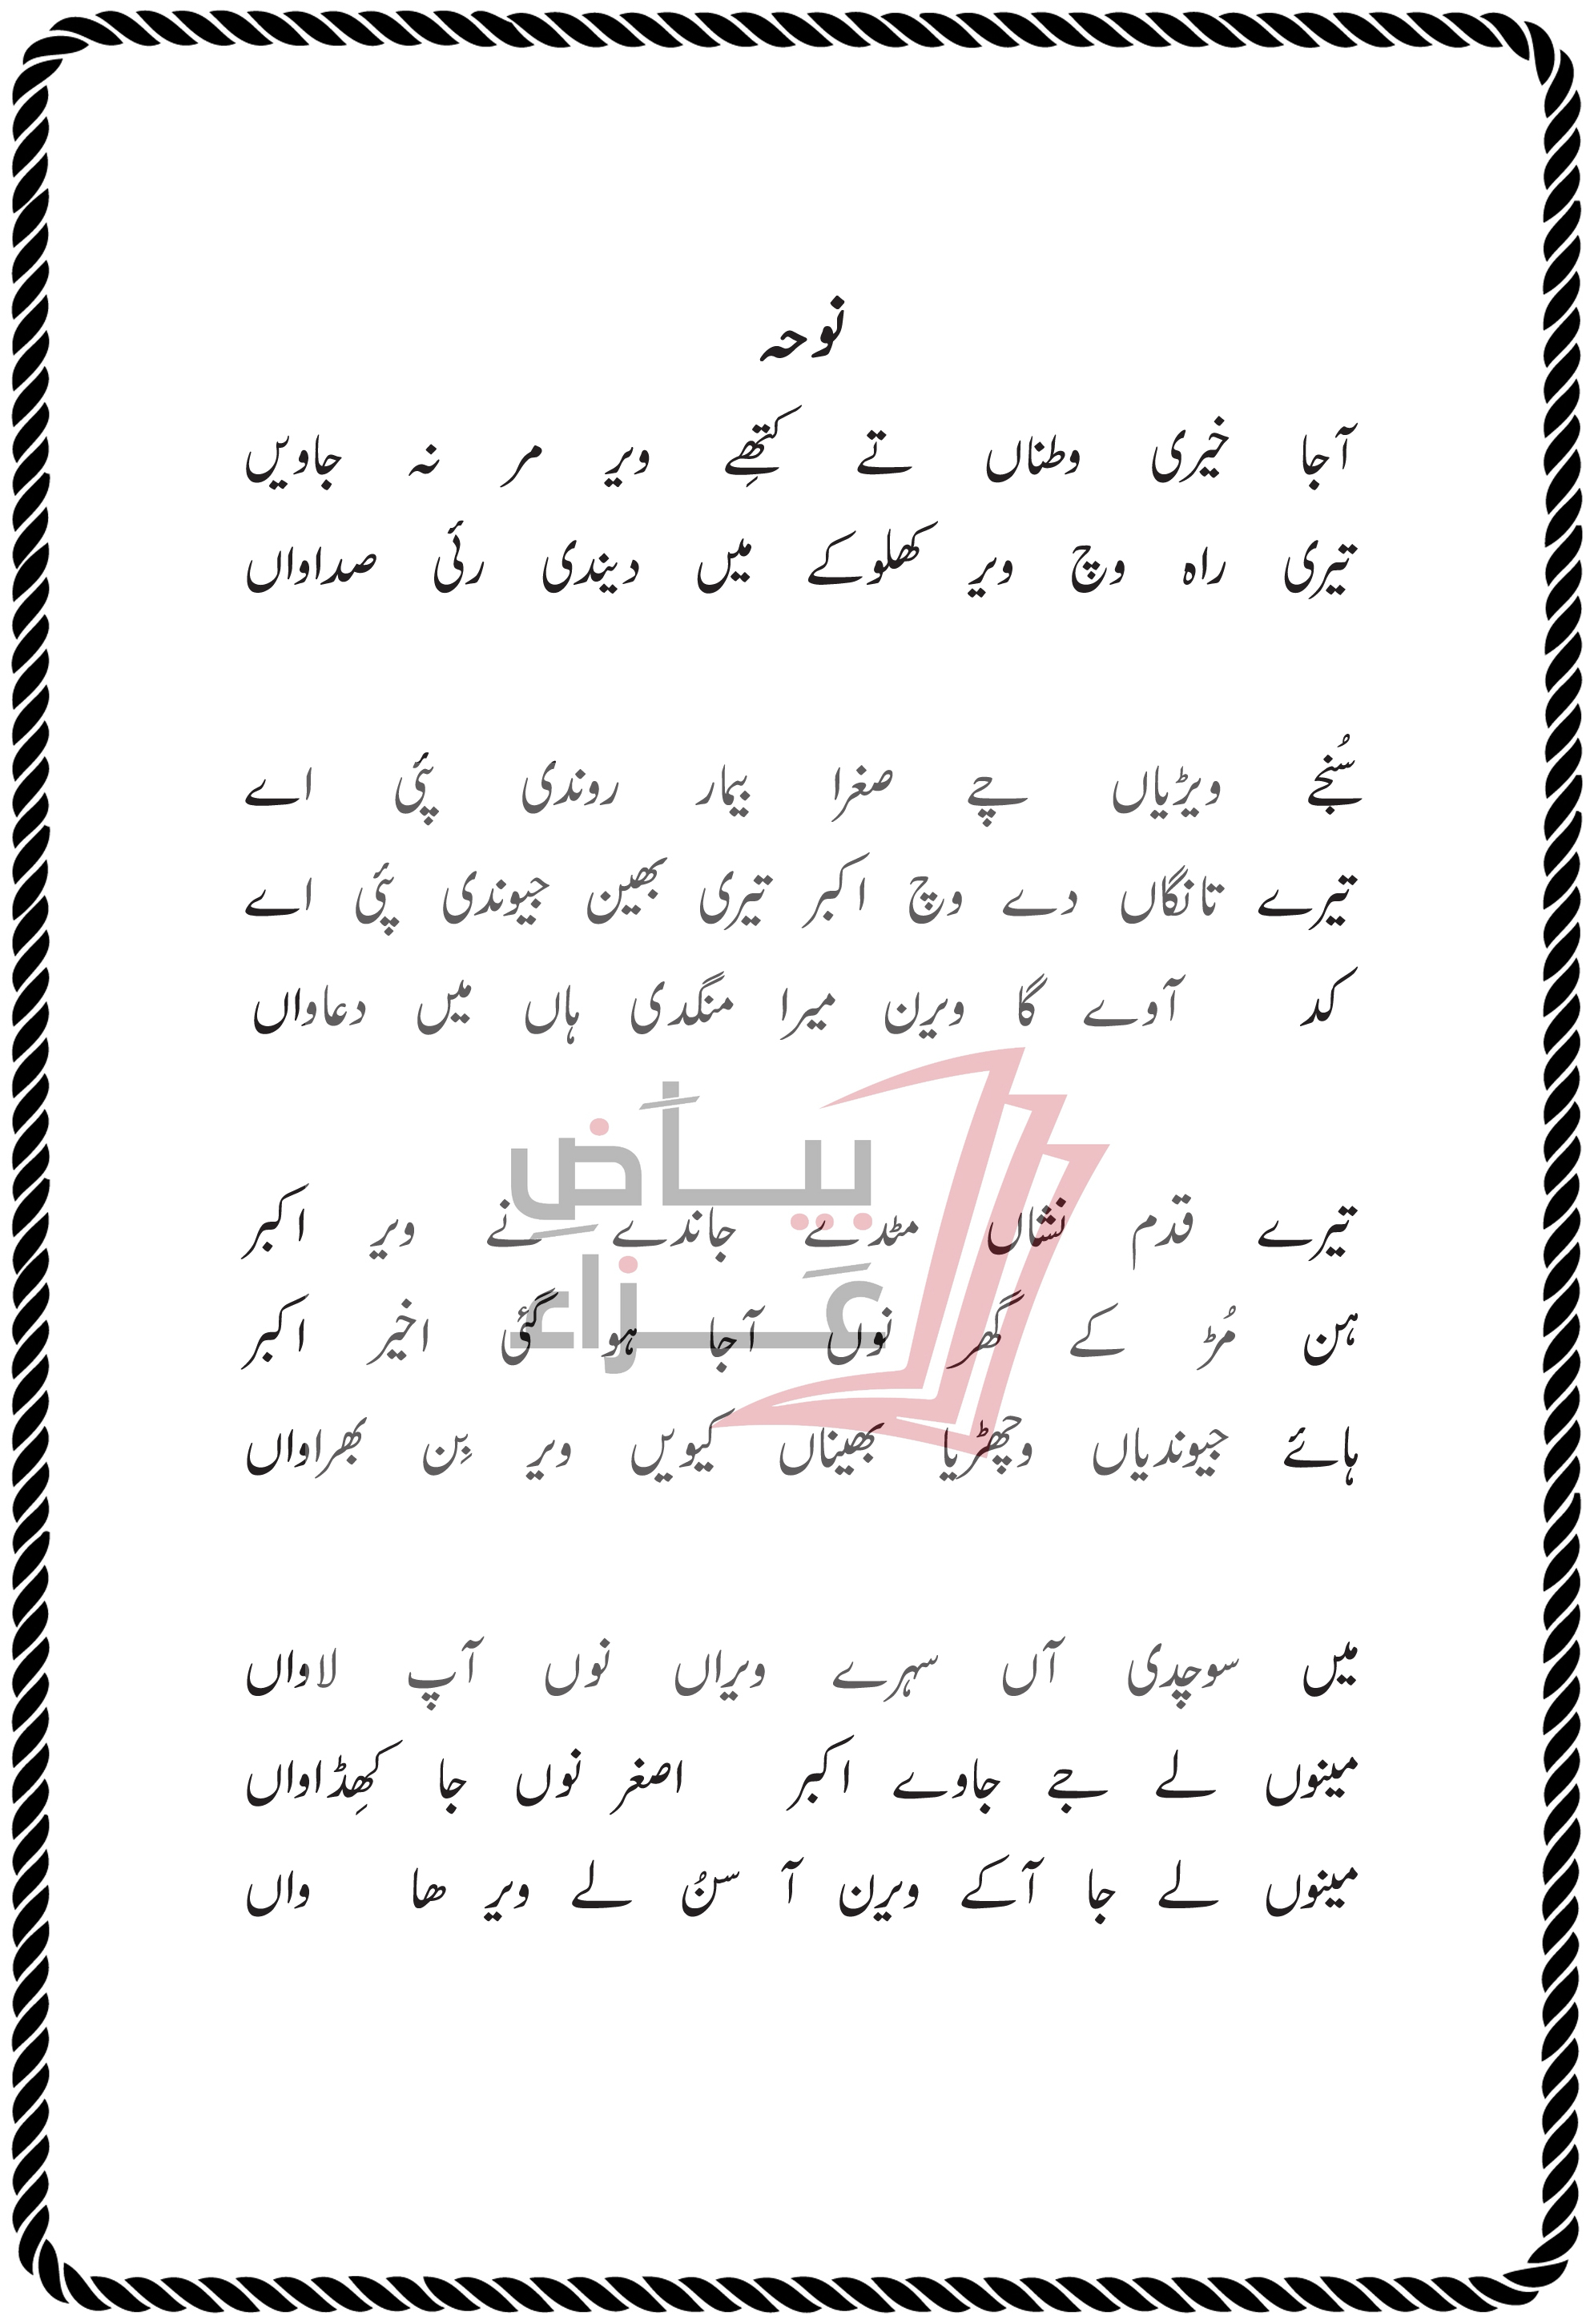 نوحہ
آجا خیری وطناں تے کتھِے ویر مر نہ جاویں
تیری راہ وچ ویر کھلوکے میں دیندی رئی صداواں
سُنجے ویڑیاں چے صغرا بیمار روندی پئی اے
تیرے تانگاں دے وچ اکبر تیری بھین جیوندی پئی اے
کد آوے گا ویرن میرا منگدی ہاں میں دعاواں
بیاض
عزاء
تیرے قدم نشاں مٹدے جاندے نے ویر اکبر
ہن مُڑ کے گھر نوں آجا ہو گئی اخیر اکبر
ہائے جیوندیاں وچھڑیا بھیناں کیویں ویر بِن بھراواں
میں سوچدی آں سہرے ویراں نوں آپ لاواں
مینوں لے جے جاوے اکبر اصغر نوں جا کھِڈاواں
مینوں لے جا آکے ویرن آ سنُ لے ویر ھا واں